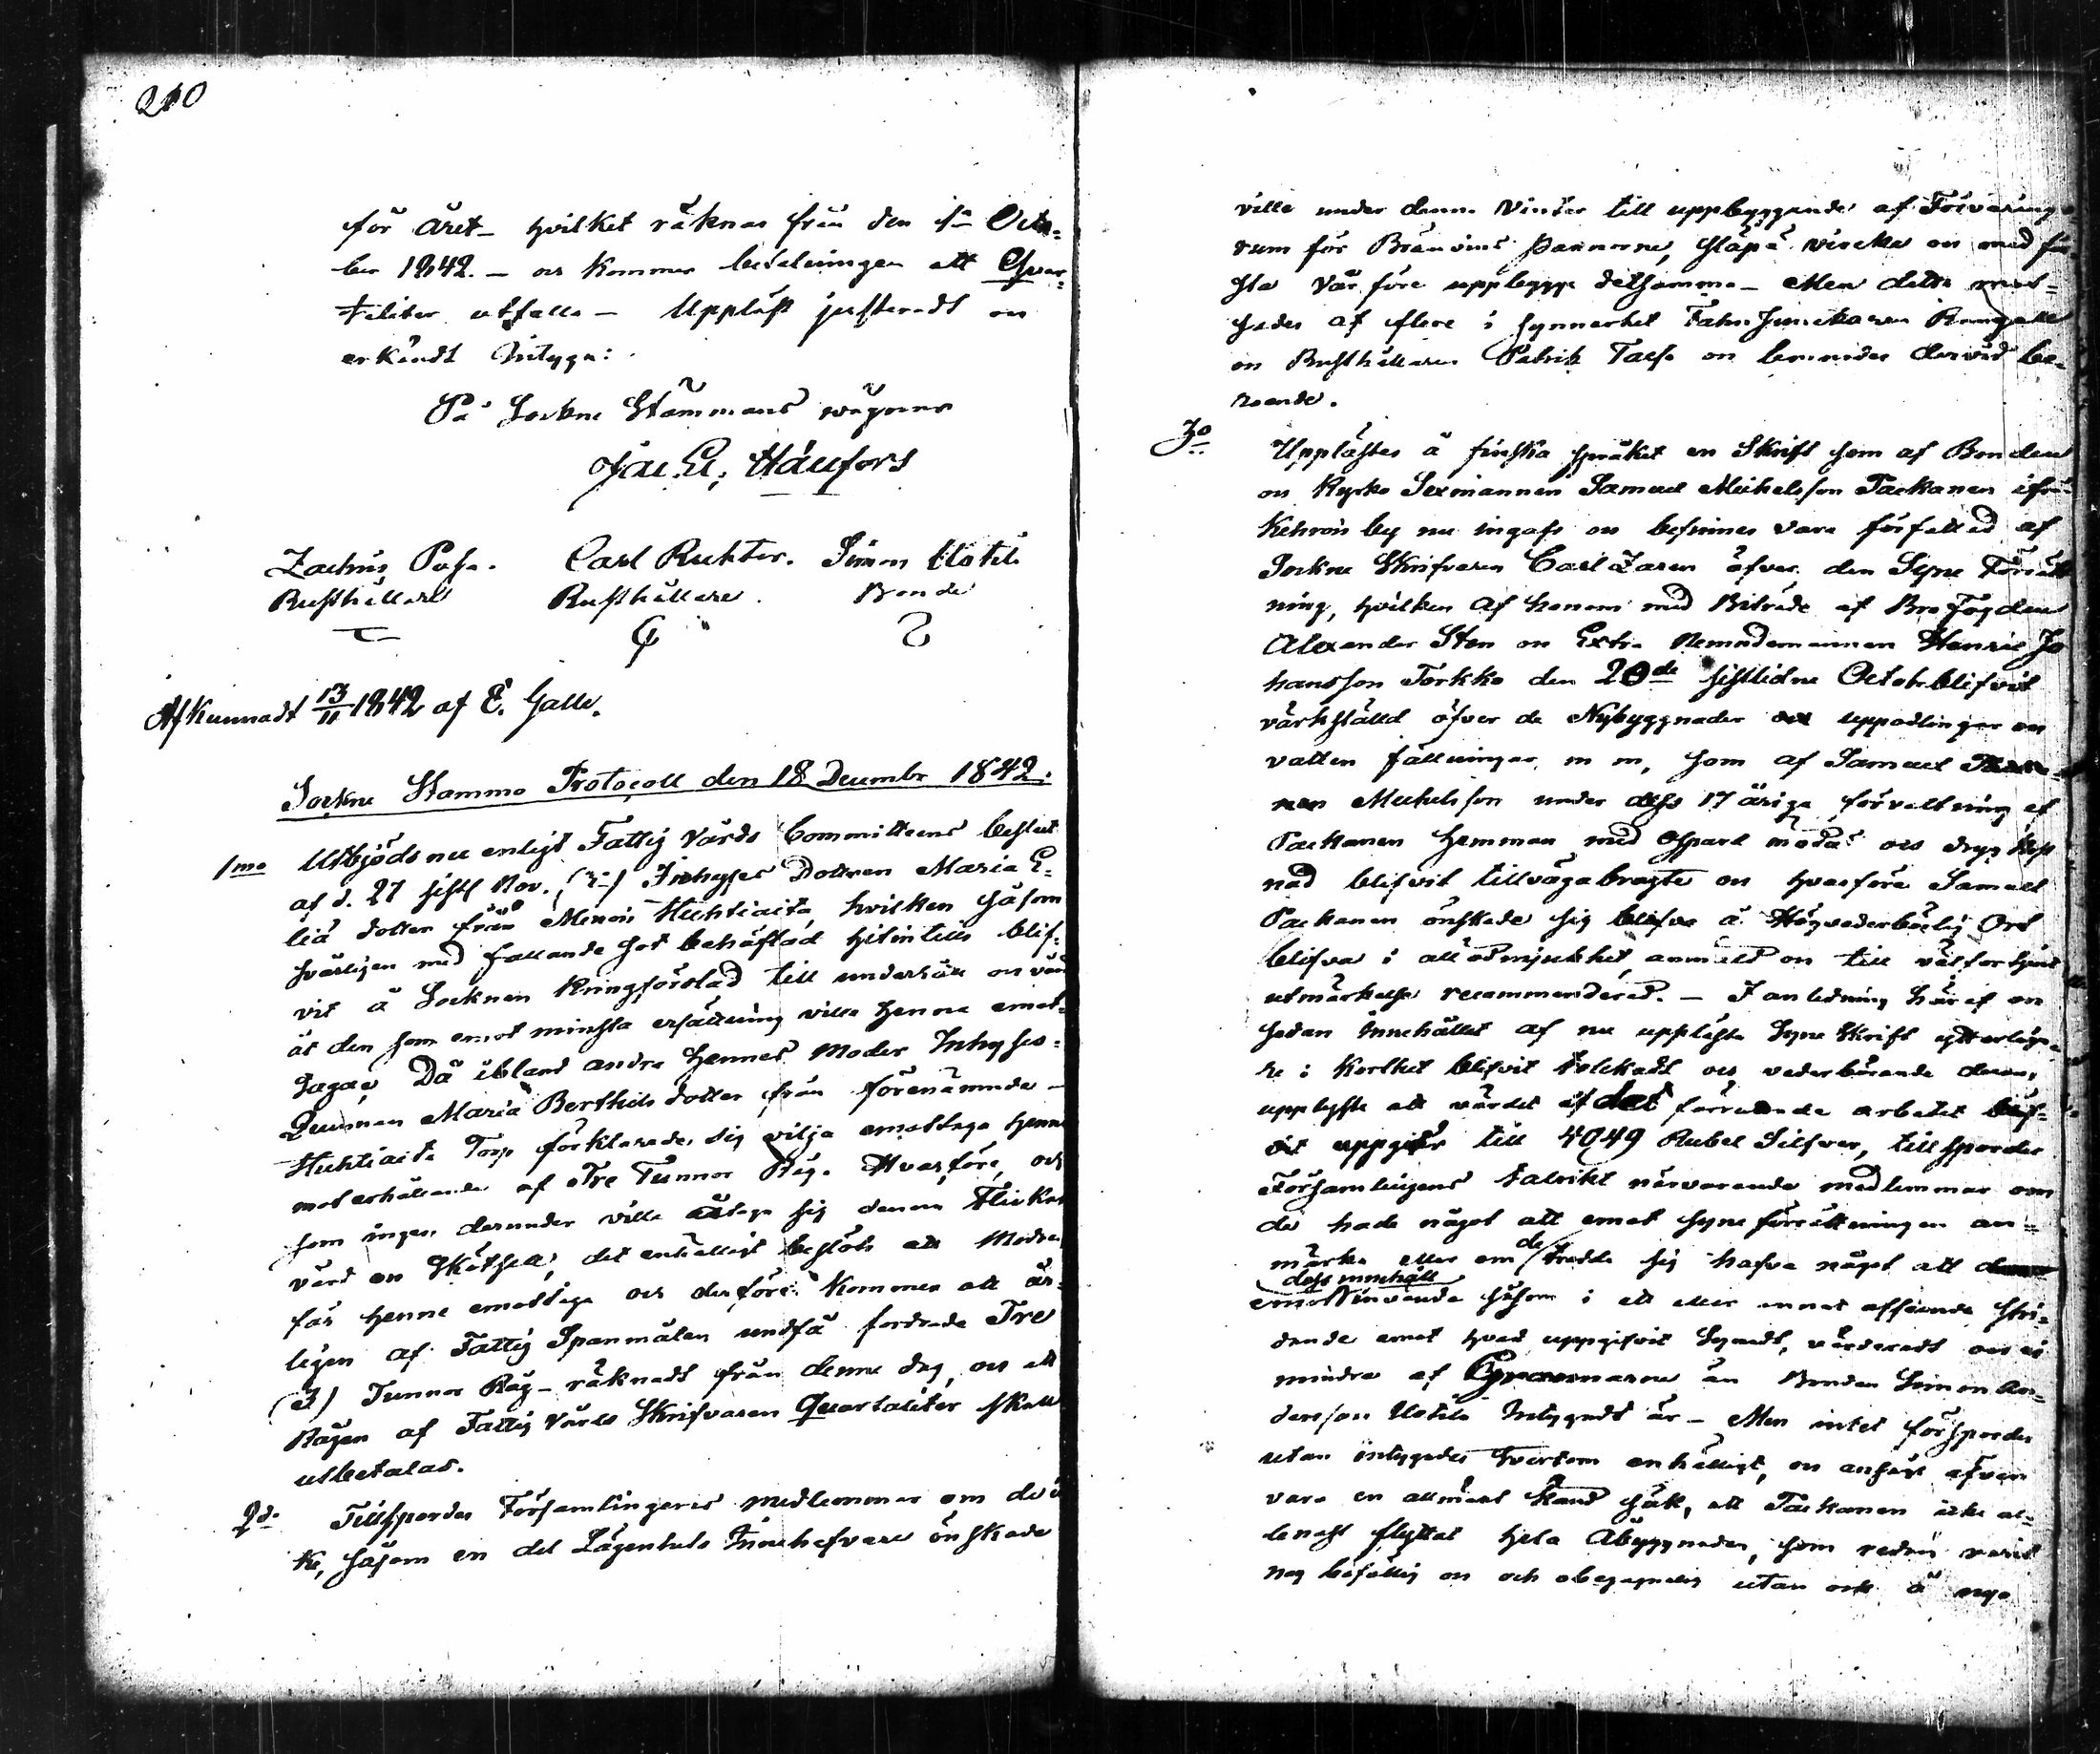 210
för året – hvilket räknas från den 1a Octo-
ber 1842. – och kommer betalningen att Quar-
taliter utfalla – Uppläst justeradt och
erkändt Intyga:
På Sockne Stämmans wägnar
Zachris Pass. Carl Richter. Simon Uotila
Rusthållare Rusthållare. Bonde
Afkunnadt 13/11 1842 af E. Galle.
Sockne Stämmo Protocoll den 18 Decembr 1842.
1mo Utbjöds nu enligt Fattig Vårds Committeens beslut
af d. 27 sistl Nov. Inhyses Dottren Maria E-
liä dotter från Huhtiaita, hvilken såsom
svårligen med fallande sot behäftad hitintills blif-
vit å Socknen kringförslad till underhåll och vård
åt den som emot minsta ersättning ville henne emot-
taga, Då ibland andra hennes Moder Inhyses-
Qvinnan Maria Berthils dotter från förenämnde –
Huhtiaita Torp förklarade sig vilja emottaga henne
mot erhållande af Tre Tunnor Råg. Hvarföre, och
som ingen derunder ville åtaga sig denna Flickas
vård och Skötsell, det enhälligt beslöts att Modren
får henne emottaga och derföre kommer att år-
ligen af Fattig Spanmålen undfå fordrade Tre
(3) Tunnor Råg – räknadt från denne dag, och att
Rågen af Fattig Vårds Skrifvaren Quartaliter skall
utbetalas.
2do Tillspordes Församlingenes medlemmar om de
ke, såsom en del Lägenhets Innehafvare önskade
ville under denna Vinter till uppbyggande af Förvarings
rum för Bränvins Pannorne, släpa vircke och med för-
sta Vår före uppbygga detsamma – Men detta mot-
sades af flere i synnerhet
och Rusthållaren Patrik och lemnades dervid be-
roende.
3o Upplästes å finska språket en Skrift som af Bonden
och Kyrko Sexmannen Samuel Michelsson Tackanen ifrån
by nu ingafs och befinnes vara författad af
Sockne Skrifvaren Carl Zaren öfver den Syne Förrätt
ning, hvilken af honom med Biträde af Bro Fogden
Alexander Sten och Extra Nemndemannen Henric Jo
hansson Torkko den 20de sistlidne Octobr blifvit
värkställd öfver de Nybyggnader uppodlingar och
vatten fällningar m m, som af Samuel
Michelsson under dess 17 åriga förvaltning af
Tackanen Hemman med ospard möda och dryg kost
nad blifvit tillvägabragte och hvarföre Samuel
Tackanen önskade sig blifva å Högvederbörlig Ort
blifva i all ödmjukhet anmäld och till välförtjent
utmärkelse recommenderad. – I anledning häraf och
sedan innehållet af nu upplästa Syne Skrift ytterliga-
re i Korthet blifvit tolckadt och vederbörande derom
upplyste att värdet af det förrättade arbetet blif-
vit uppgifver till 4049 Rubel Silfver, tillspordes
Församlingens talrikt närvarande medlemmar om
de hade något att emot syneförrättningen an-
märka eller om de trodde sig hafva något att
dess innehåll
emot invända såsom i ett eller annat afseende stri-
dande emot hvad uppgifvit Synadt, värderadt och ej
mindre af Grannarne än Bonden Simon An-
dersson Uotila Intygadt är – Men intet försporde
utan intygades tvertom enhälligt, och ansågs äfven
vara en allmänt känd sak, att Tackanen icke al-
lenast flyttat hela Åbyggnaden, som redan varit
nog bofällig och och obeqvemlig utan ock å nyo